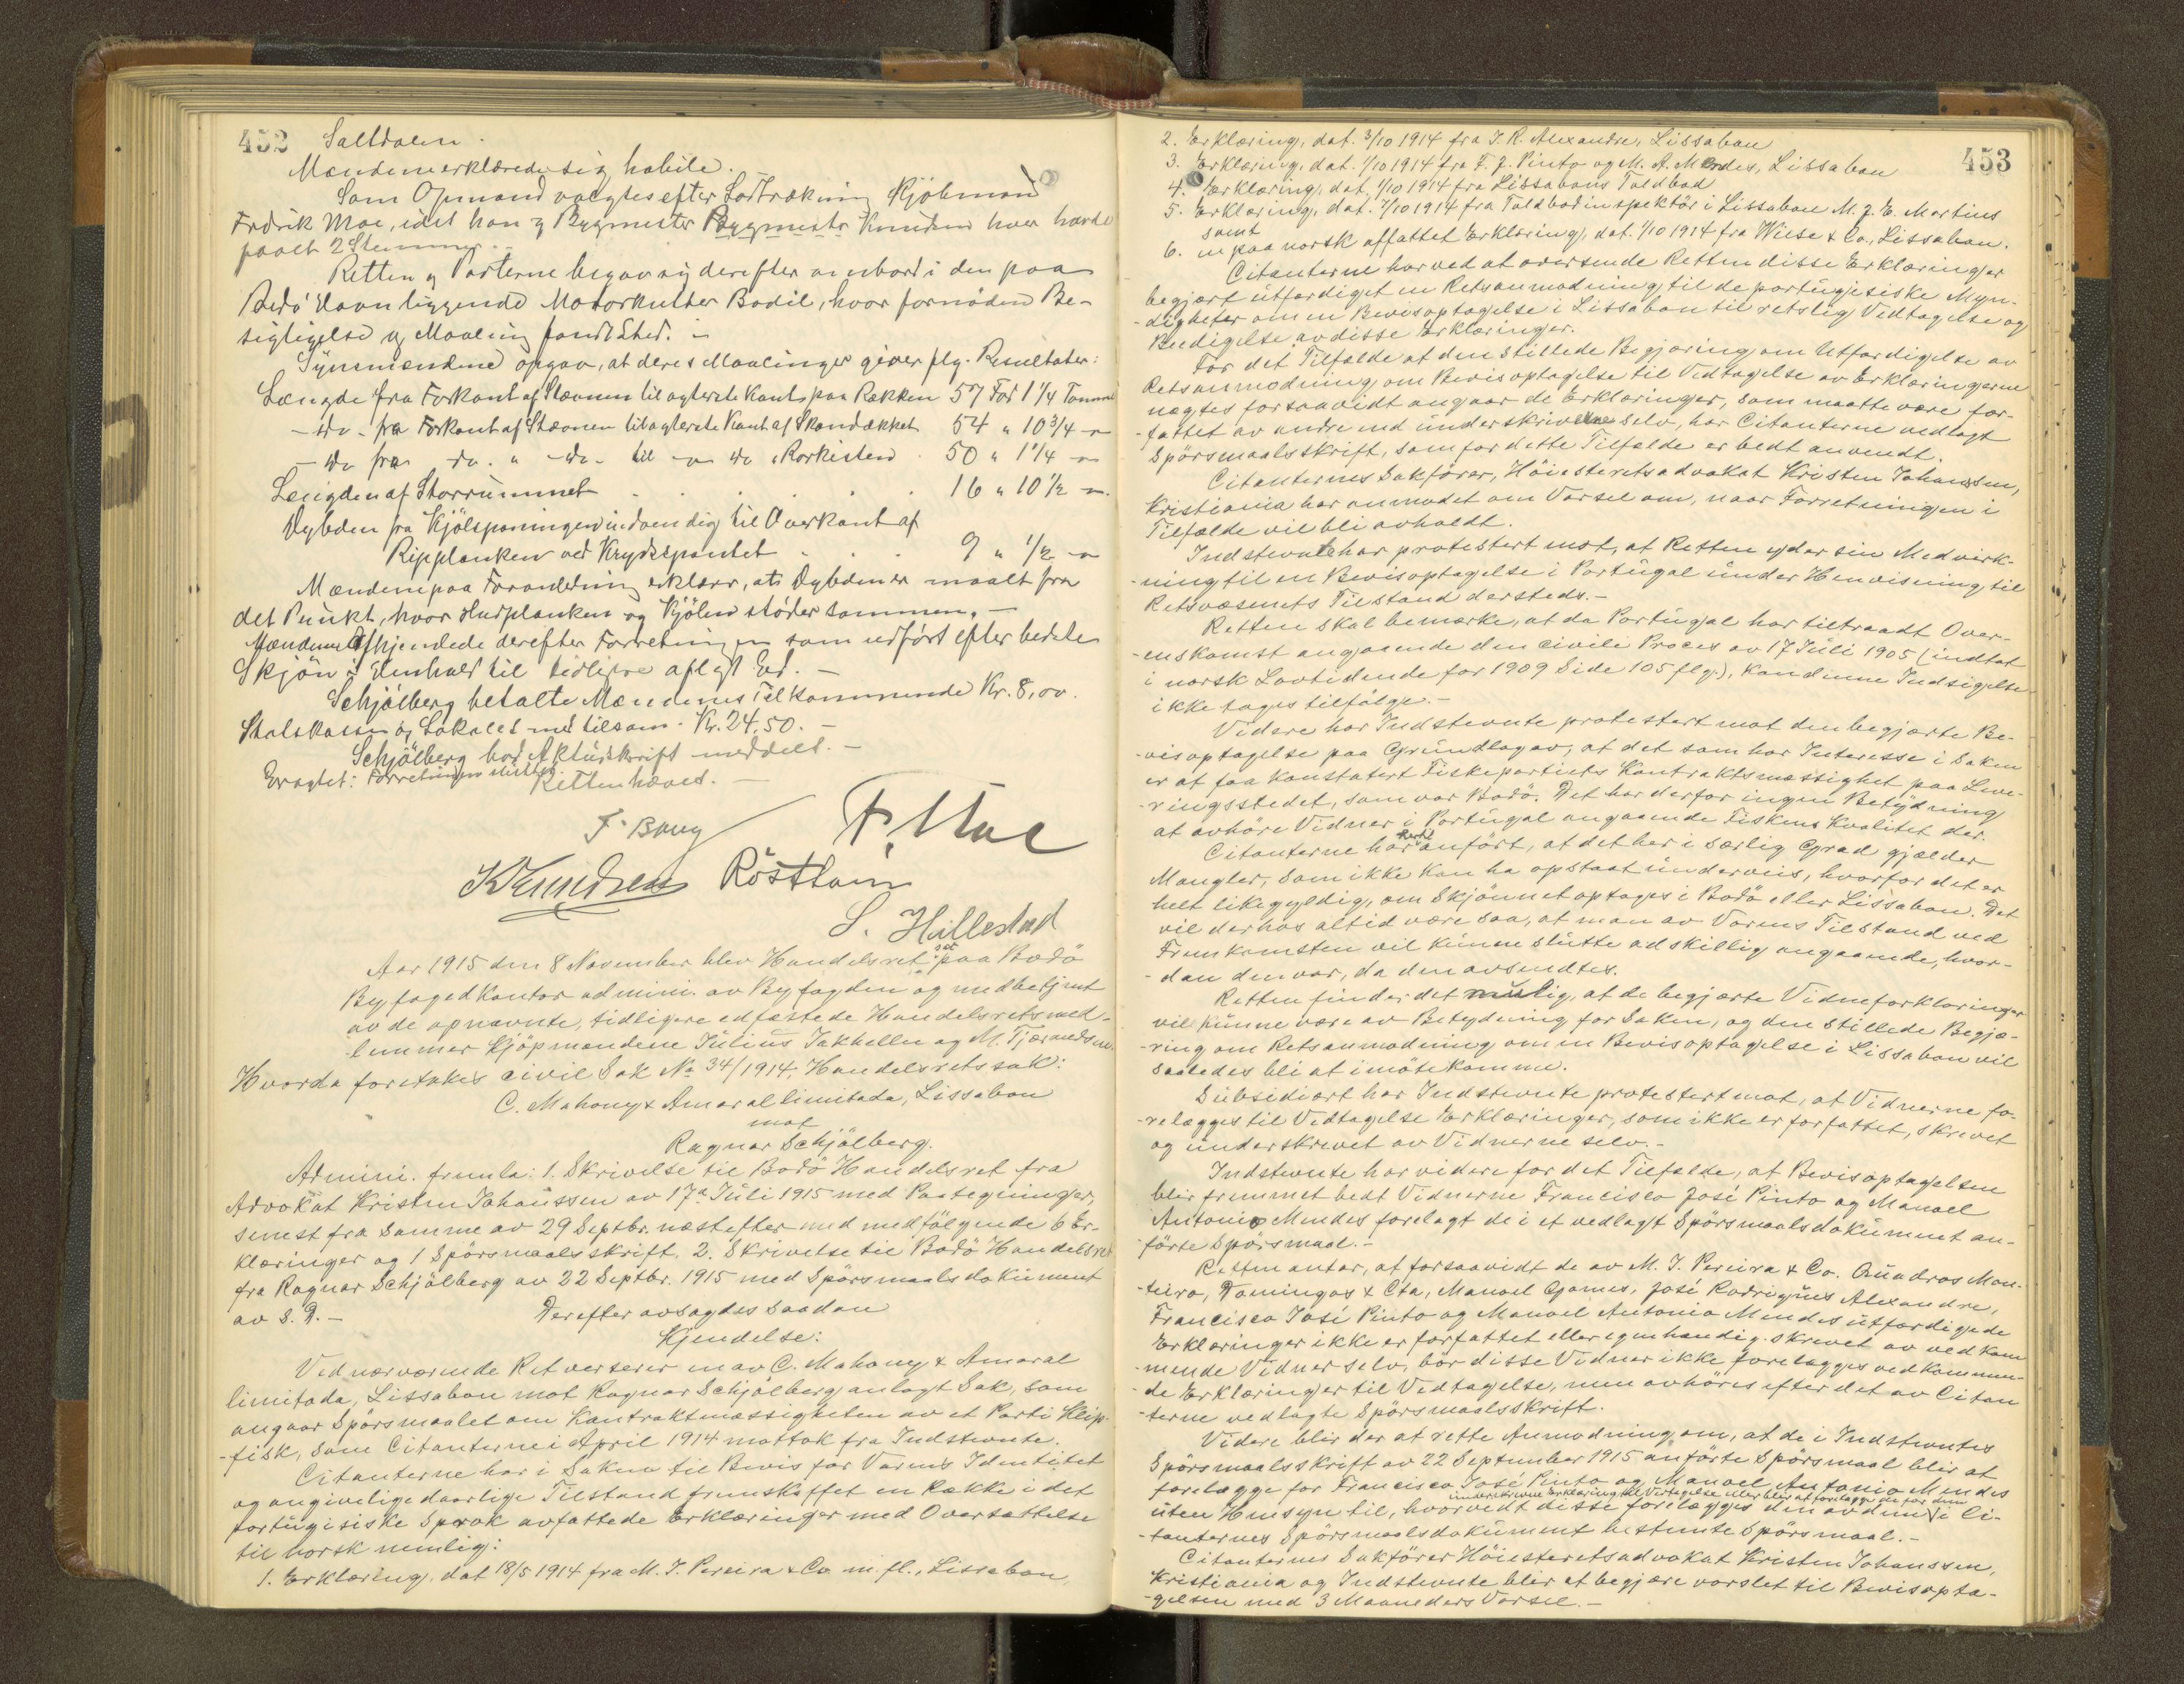 452 Saltdalen.
Mændene erklærede sig habile.
Som Opmand valgtes efter Lodtrækning Kjøbmand
Fredrik Moe, idet han og Bygmester Bygmester Knudsen hver havde
faaet 2 Stemmer.
Retten og Parterne begav sig derefter ombord i den paa
Bodö Havn liggende Motorkutter Bodil, hvor fornöden Be-
sigtigelse og Maaling fandt Sted. -
Synsmændene opgav, at deres Maalinger giver flg. Resultater:
Længde fra Forkant af Stævnen til agterste Kant paa Rækken 57 Fod 1 1/4 Tomme
- do - fra Forkant af Stævnen til agterste Kant af Skandækket 54 " 10 3/4 -"-
- do fra do. " - do - til -"- do Rorkisten . 50 " 1 1/4 -"-
Længden af Storrummet . . . . 16 " 10 1/2 -"-
Dybden fra Kjölspaningen indvendig til Overkant af
Ripplanken ved Krydsspantet . . . 9 " 1/2 -"-
Mændene paa Foranledning erklærer, at Dybden er maalt fra
det Punkt, hvor Hudplanken og Kjölen stöder sammen. -
Mændene afhjemlede derefter Forretningen som udfört efter bedste
Skjön i Henhold til tidligere aflagt Ed. -
Schjölberg betalte Mændenes Tilkommende Kr. 8,00.
Statskassen og Lokalet med tilsam. Kr. 24.50. -
Schjölberg bad Aktudskrift meddelt. -
Eragtet: Forretningen sluttet.
Retten hævet. -
F. Bang F. Moe
K Knudsen Rösttom
S. Hillestad
Aar 1915 den 8 November blev Handelsret sat paa Bodö
Byfogedkontor admini. av Byfogden og medbetjent
av de opnævnte, tidligere edfæstede Handelsretsmed-
lemmer Kjöpmændene Julius Jakhelln og M. Tjærandsen.
Hvorda foretakes civil Sak No 34/1914, Handelsretssak:
C. Mahony & Amaral limitada, Lissabon
mot
Ragnar Schjölberg.
Admini. fremla: 1. Skrivelse til Bodö Handelsret fra
Advokat Kristen Johanssen av 17de Juli 1915 med Paategninger,
senest fra Samme av 29 Septbr. næstefter med medfölgende 6 Er-
klæringer og 1 Spörsmaalsskrift. 2. Skrivelse til Bodö Handelsret
fra Ragnar Schjölberg av 22 Septbr. 1915 med Spörsmaalsdokument
av S. D. - Derefter avsagdes saadan
Kjendelse:
Ved nærværende Ret verserer en av C. Mahony & Amaral
limitada, Lissabon mot Ragnar Schjölberg anlagt Sak, som
angaar Spörsmaalet om Kontraktmæssigheten av et Parti Klip-
fisk, som Citanterne i April 1914 mottok fra Indstevnte.
Citanterne har i Saken til Bevis for Varens Identitet
og angivelige daarlige Tilstand fremskaffet en Række i det
portugisiske Sprok avfattede Erklæringer med Oversættelse
til norsk nemlig:
1. Erklæring, dat 18/5 1914 fra M. J. Pereira & Co m. fl., Lissabon,
453
2. Erklæring, dat. 3/10 1914 fra J. R. Alexandre, Lissabon
3. Erklæring, dat. 1/10 1914 fra F. J. Pinto og M. A. Mendes, Lissabon
4. Erklæring, dat. 1/10 1914 fra Lissabons Toldbod
5. Erklæring, dat. 7/10 1914 fra Toldbodinspektör i Lissabon M. J. E. Martins
samt
6. en paa norsk affattet Erklæring, dat. 1/10 1914 fra Wiese & Co., Lissabon.
Citanterne har ved at oversende Retten disse Erklæringer
begjært utfærdiget en Retsanmodning til de portugisiske Myn-
-digheter om en Bevisoptagelse i Lissabon til retslig Vedtagelse og
Beedigelse av disse Erklæringer.
For det Tilfælde at den stillede Begjæring om Utfærdigelse av
Retsanmodning om Bevisoptagelse til Vedtagelse av Erklæringerne
nægtes forsaavidt angaar de Erklæringer, som maatte være for-
-fattet av andre end underskriverne selv, har Citanterne vedlagt
Spörsmaalsskrift, som for dette Tilfælde er bedt anvendt.
Citanternes Sakförer, Höiesteretsadvokat Kristen Johanssen,
Kristiania har anmodet om Varsel om, naar Forretningen i
Tilfælde vil bli avholdt.
Indstevnte har protestert mot, at Retten yder sin Medvirk-
-ning til en Bevisoptagelse i Portugal under Henvisning til
Retsvæsenets Tilstand dersteds. -
Retten skal bemærke, at da Portugal har tiltraadt Over-
-enskomst angaaende den civile Proces av 17 Juli 1905 (indtat
i norsk Lovtidende for 1909 Side 105 flg.), kan denne Indsigelse
ikke tages tilfölge. -
Videre har Indstevnte protestert mot den begjærte Be-
-visoptagelse paa Grundlag av, at det som har Interesse i Saken
er at faa konstatert Fiskepartiets Kontraktsmæssighet paa Leve-
-ringsstedet, som var Bodö. Det har derfor ingen Betydning
at avhöre Vidner i Portugal angaaende Fiskens Kvalitet der.
Citanterne har hertil anfört, at det her i særlig Grad gjælder
Mangler, som ikke kan ha opstaat underveis, hvorfor det er
helt likegyldig, om Skjönnet optages i Bodö eller Lissabon. Det
vil derhos altid være saa, at man av Varens Tilstand ved
Fremkomsten vil kunne slutte adskillig angaaende, hvor-
-dan den var, da den avsendtes.
Retten finder det mulig, at de begjærte Vidneforklaringer
vil kunne være av Betydning for Saken, og den stillede Begjæ-
-ring om Retsanmodning om en Bevisoptagelse i Lissabon vil
saaledes bli at imötekomme.
Subsidiært har Indstevnte protestert mot, at Vidnerne fo-
-relægges til Vedtagelse Erklæringer, som ikke er forfattet, skrevet
og underskrevet av Vidnerne selv. -
Indstevnte har videre for det Tilfælde, at Bevisoptagelsen
blir fremmet bedt Vidnerne Francisco José Pinto og Manoel
Antonio Mendes forelagt de i et vedlagt Spörsmaalsdokument an-
-förte Spörsmaal. -
Retten antar, at forsaavidt de av M. J. Pereira & Co. Quadros Mon-
-teiro, Domingos & Cta, Manoel Gomes, José Rodrigues Alexandre,
Francisco José Pinto og Manoel Antonio Mendes utfærdigede
Erklæringer ikke er forfattet eller egenhændig skrevet av vedkom-
mende Vidner selv, bör disse Vidner ikke forelægges vedkommen-
-de Erklæringer til Vedtagelse, men avhöres efter det av Citan
-terne vedlagte Spörsmaalsskrift.
Videre blir der at rette Anmodning om, at de i Indstevntes
Spörsmaalsskrift av 22 September 1915 anförte Spörsmaal blir at
forelægge for Francisco José Pinto og Manoel Antonio Mendes
underskrevne Erklæring til Vedtagelse eller blir at forelægge de for dem
uten Hensyn til, hvorvidt disse forelægges den av dem i Ci-
-tanternes Spörsmaalsdokument bestemte Spörsmaal. -
Citanternes Sakförer Höiesteretsadvokat Kristen Johanssen,
Kristiania og Indstevnte blir at begjære varslet til Bevisopta-
-gelsen med 3 Maaneders Varsel. -